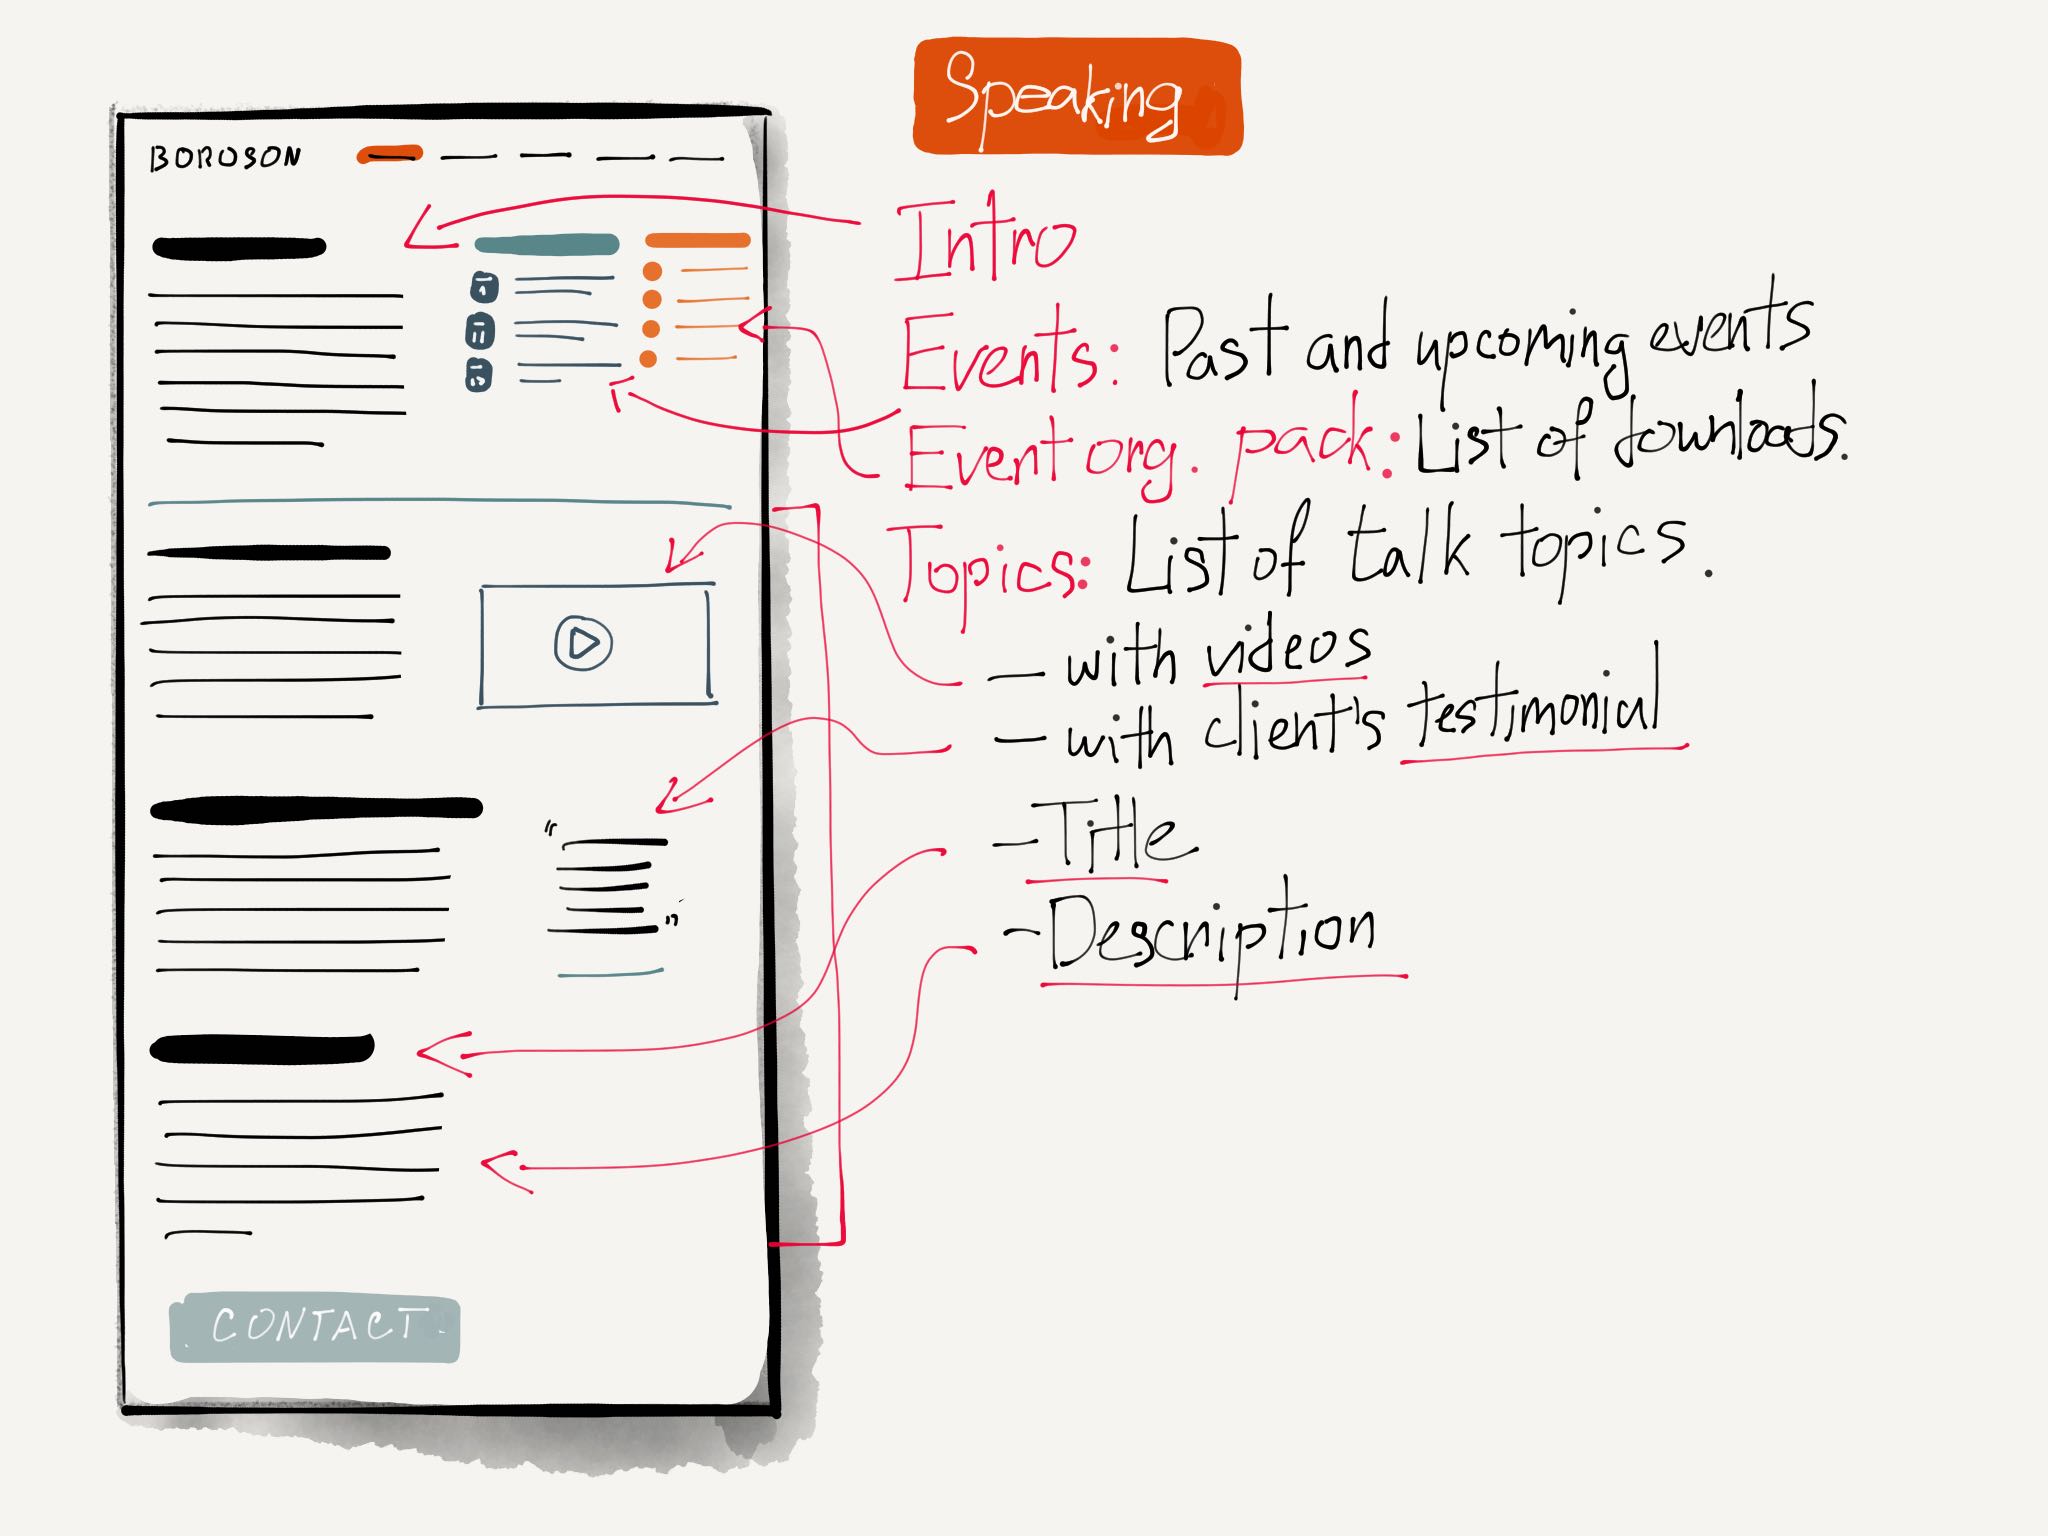 Speaking
BOROSON
Intro
Events: Past and upcoming events
Event org. pack: List of downloads.
Topics: List of talk topics.
— with videos
— with client's testimonial
- Title
- Description
"
"
CONTACT